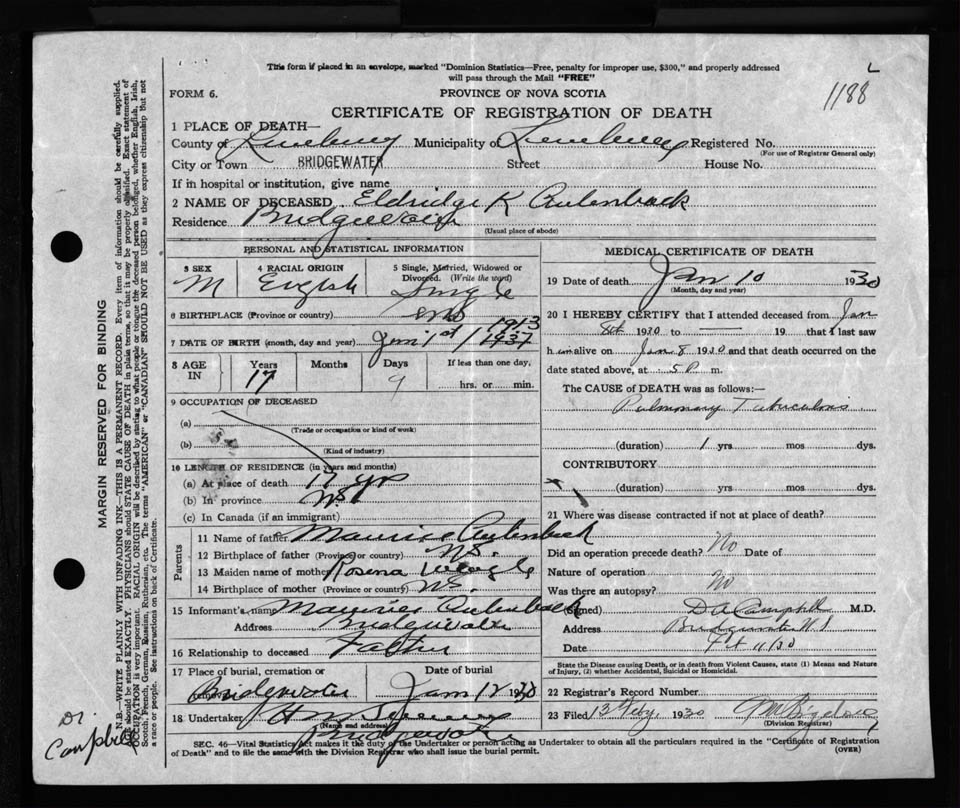 This form if placed in an envelope, marked "Dominion Statistics—Free, penalty for improper use, $300," and properly addressed
will pass through the Mail "FREE"
L
1188
FORM 6.
PROVINCE OF NOVA SCOTIA
CERTIFICATE OF REGISTRATION OF DEATH
1 PLACE OF DEATH—
County of Lunenburg Municipality of Lunenburg Registered No.
(For use of Registrar General only)
City or Town BRIDGEWATER Street House No.
If in hospital or institution, give name
2 NAME OF DECEASED Eldridge K Aulenback
Residence Bridgewater
(Usual place of abode)
PERSONAL AND STATISTICAL INFORMATION
3 SEX M
4 RACIAL ORIGIN English
5 Single, Married, Widowed or Divorced. (Write the word) Single
6 BIRTHPLACE (Province or country) NS
7 DATE OF BIRTH (month, day and year) Jan 1st 1913
8 AGE IN Years 17 Months Days 9 If less than one day, hrs. or min.
9 OCCUPATION OF DECEASED
(a)
(Trade or occupation or kind of work)
(b)
(Kind of industry)
10 LENGTH OF RESIDENCE (in years and months)
(a) At place of death 17 yrs
(b) In province NS.
(c) In Canada (if an immigrant)
Parents
11 Name of father Maurice Aulenback
12 Birthplace of father (Province or country) NS.
13 Maiden name of mother Rosena
14 Birthplace of mother (Province or country) NS.
15 Informant's name Maurice Aulenback
Address Bridgewater
16 Relationship to deceased Father
17 Place of burial, cremation or removal Bridgewater
Date of burial Jan 12 1930
18 Undertaker
(Name and address)
Bridgewater
MEDICAL CERTIFICATE OF DEATH
19 Date of death Jan 10 1930
(Month, day and year)
20 I HEREBY CERTIFY that I attended deceased from Jan
8th 1930 to — 19 that I last saw
him alive on Jan 8 1930 and that death occurred on
date stated above, at 5 P m.
The CAUSE OF DEATH was as follows:—
Pulmonary Tuberculosis
(duration) 1 yrs mos dys.
CONTRIBUTORY
(duration) yrs mos dys.
21 Where was disease contracted if not at place of death?
Did an operation precede death? No Date of
Nature of operation
Was there an autopsy? No
(Signed) D A Campbell M.D.
Address Bridgewater N.S
Date
State the Disease causing Death, or in death from Violent Causes, state (1) Means and Nature
of Injury, (2) whether Accidental, Suicidal or Homicidal.
22 Registrar's Record Number
23 Filed 13 1930
(Division Registrar)
SEC. 46—Vital Statistics Act makes it the duty of the Undertaker or person acting as Undertaker to obtain all the particulars required in the "Certificate of Registration
of Death" and to file the same with the Division Registrar who shall issue the burial permit.
(OVER)
MARGIN RESERVED FOR BINDING
N.B.—WRITE PLAINLY WITH UNFADING INK—THIS IS A PERMANENT RECORD. Every item of information should be carefully supplied.
AGE should be stated EXACTLY. PHYSICIANS should STATE CAUSE OF DEATH in plain terms, so that it may be properly classified. Exact statement of
OCCUPATION is very important. RACIAL ORIGIN will be described by stating to what people or tongue the deceased person belonged, whether English, Irish,
Scotch, French, German, Russian, Ruthenian, etc. The terms "AMERICAN" or "CANADIAN" SHOULD NOT BE USED as they express citizenship but not
a race or people. See instructions on back of Certificate.
Dr
Campbell